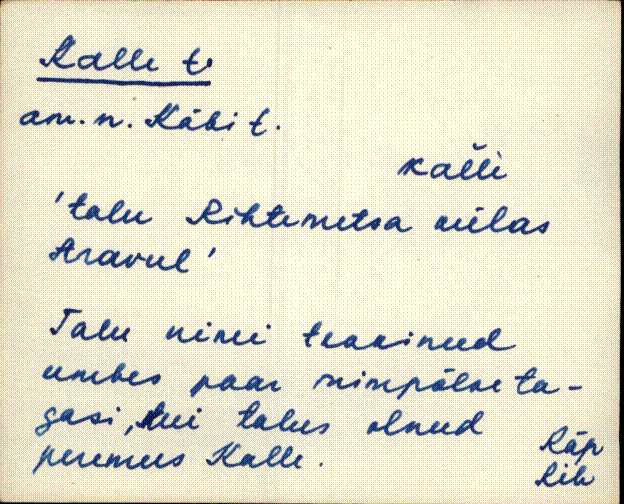 Kalle t.
am. n. Käbi t.
kaĺĺè
'talu Rihtemetsa külas
Aravul'
Talu nimi tekkinud
umbes paar inimpõlve ta-
gasi, kui talus olnud
peremees Kalle.
Räp
Rih